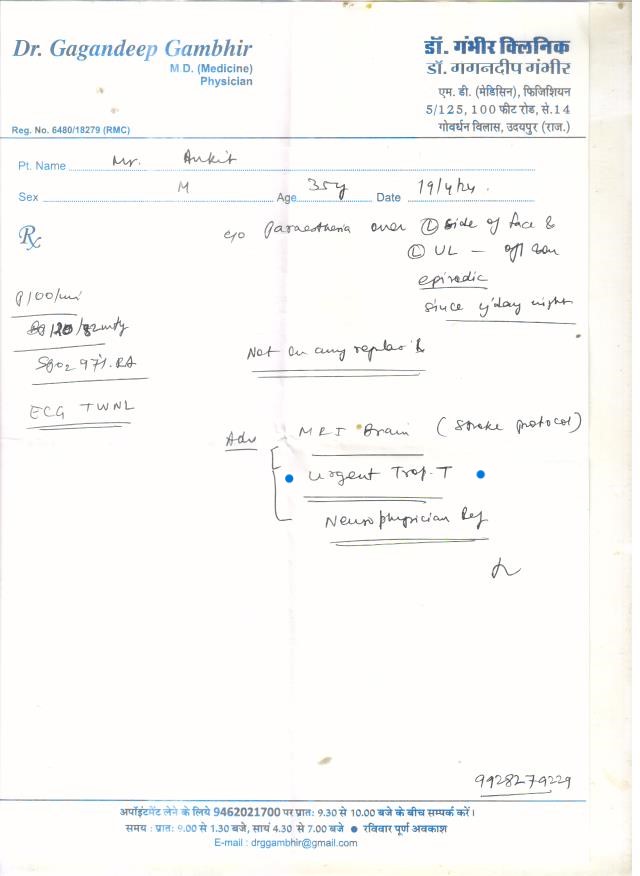 Dr. Gagandeep Gambhir
M.D. (Medicine)
Physician
Reg. No. 6480/18279 (RMC)
डॉ. गंभीर क्लिनिक
डॉ. गगनदीप गंभीर
एम. डी. (मेडिसिन), फिजिशियन
5/125, 100 फीट रोड, से.14
गोवर्धन विलास, उदयपुर (राज.)
Pt. Name Mr. Ankit
Sex M Age 35y Date 19/4/24.
Rx
c/o Paraesthesia over Ⓛ side of face &
Ⓛ UL – off & on
episodic
since y'day night
P 100/min
120/82 mmHg
SpO2 97% RA
ECG TWNL
Not on any regular R
Adv - MRI Brain (Stroke protocol)
Urgent Trop. T
Neurophysician Ref
9928279229
अपॉइंटमेंट लेने के लिये 9462021700 पर प्रातः 9.30 से 10.00 बजे के बीच सम्पर्क करें।
समय : प्रातः 9.00 से 1.30 बजे, सायं 4.30 से 7.00 बजे ● रविवार पूर्ण अवकाश
E-mail : drggambhir@gmail.com